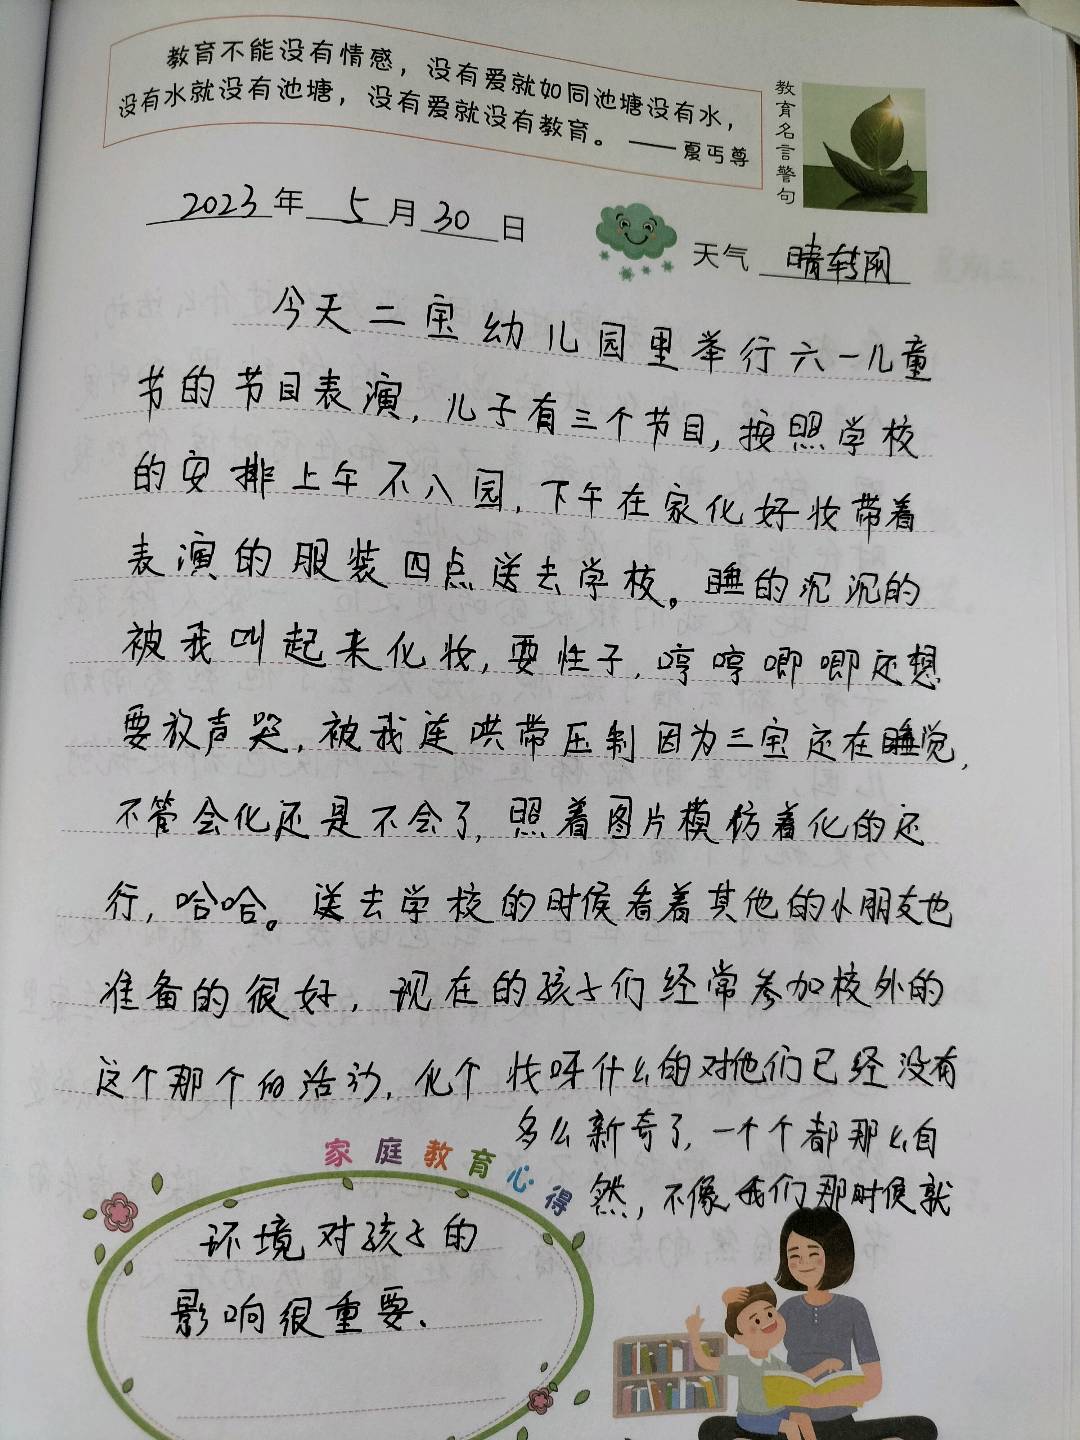 教育不能没有情感，没有爱就如同池塘没有水，
没有水就没有池塘，没有爱就没有教育。——夏丏尊
教育名言警句
2023年5月30日
天气 晴转阴
今天二宝幼儿园里举行六一儿童
节的节目表演，儿子有三个节目，按照学校
的安排上午不入园，下午在家化好妆带着
表演的服装四点送去学校。睡的沉沉的
被我叫起来化妆，耍性子，哼哼唧唧还想
要放声哭，被我连哄带压制因为三宝还在睡觉，
不管会化还是不会了，照着图片模仿着化的还
行，哈哈。送去学校的时候看着其他的小朋友也
准备的很好，现在的孩子们经常参加校外的
这个那个的活动，化个妆呀什么的对他们已经没有
多么新奇了，一个个都那么自
然，不像我们那时候就
家庭教育心得
环境对孩子的
影响很重要.